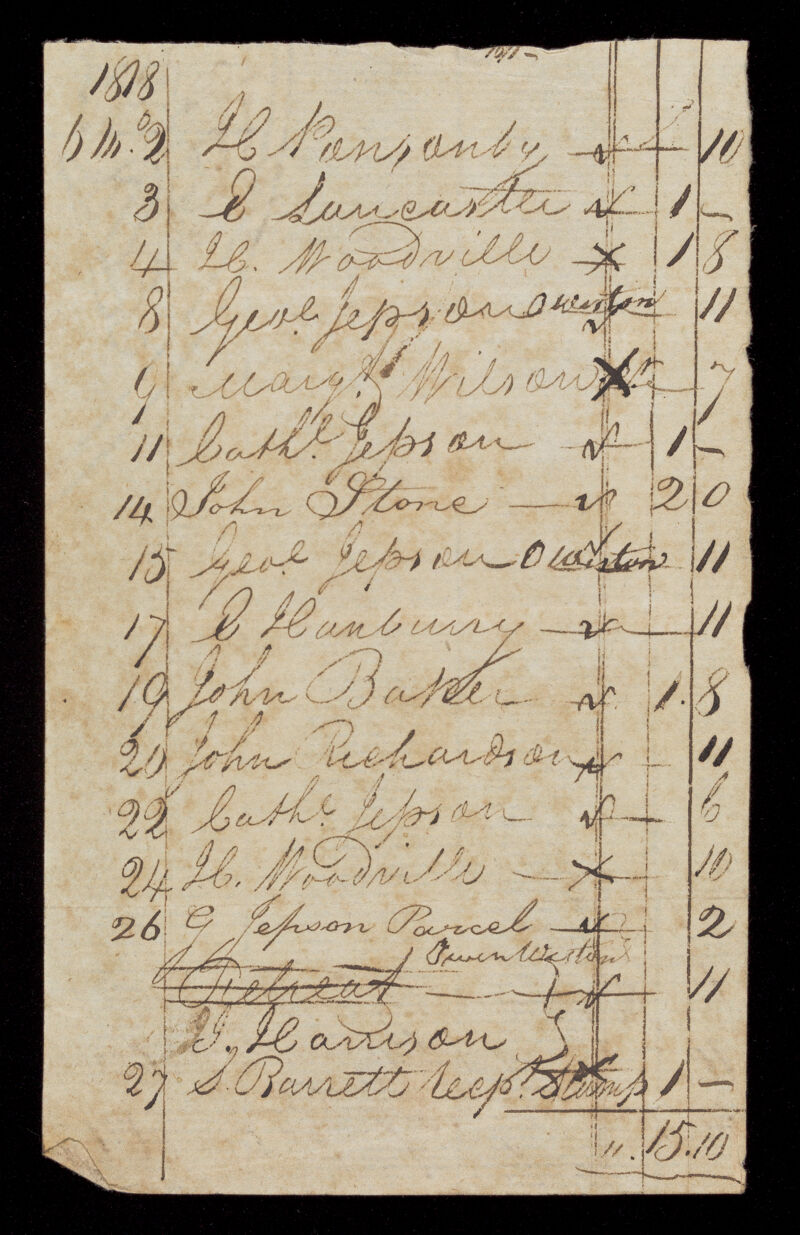 1818
6 Mo. 2 H Ponsonby — 10
3 E Lancaster 1 —
4 H. Woodville × 1 8
8 Geo.e Jepson O Weston 11
9 Marg.t Wilson × — 7
11 Cath.e Jepson 1 —
14 John Stone — 2 0
15 Geo.e Jepson O Weston 11
17 E Hanburry — 11
19 John Baker 1. 8
20 John Richardson — 11
22 Cath.e Jepson — 6
24 H. Woodville — × 10
26 G Jepson Parcel — 2
Owen Weston
Retreat — } — 11
J. Harrison }
27 S. Barrett Recp.t Stamp 1 —
". 15. 10